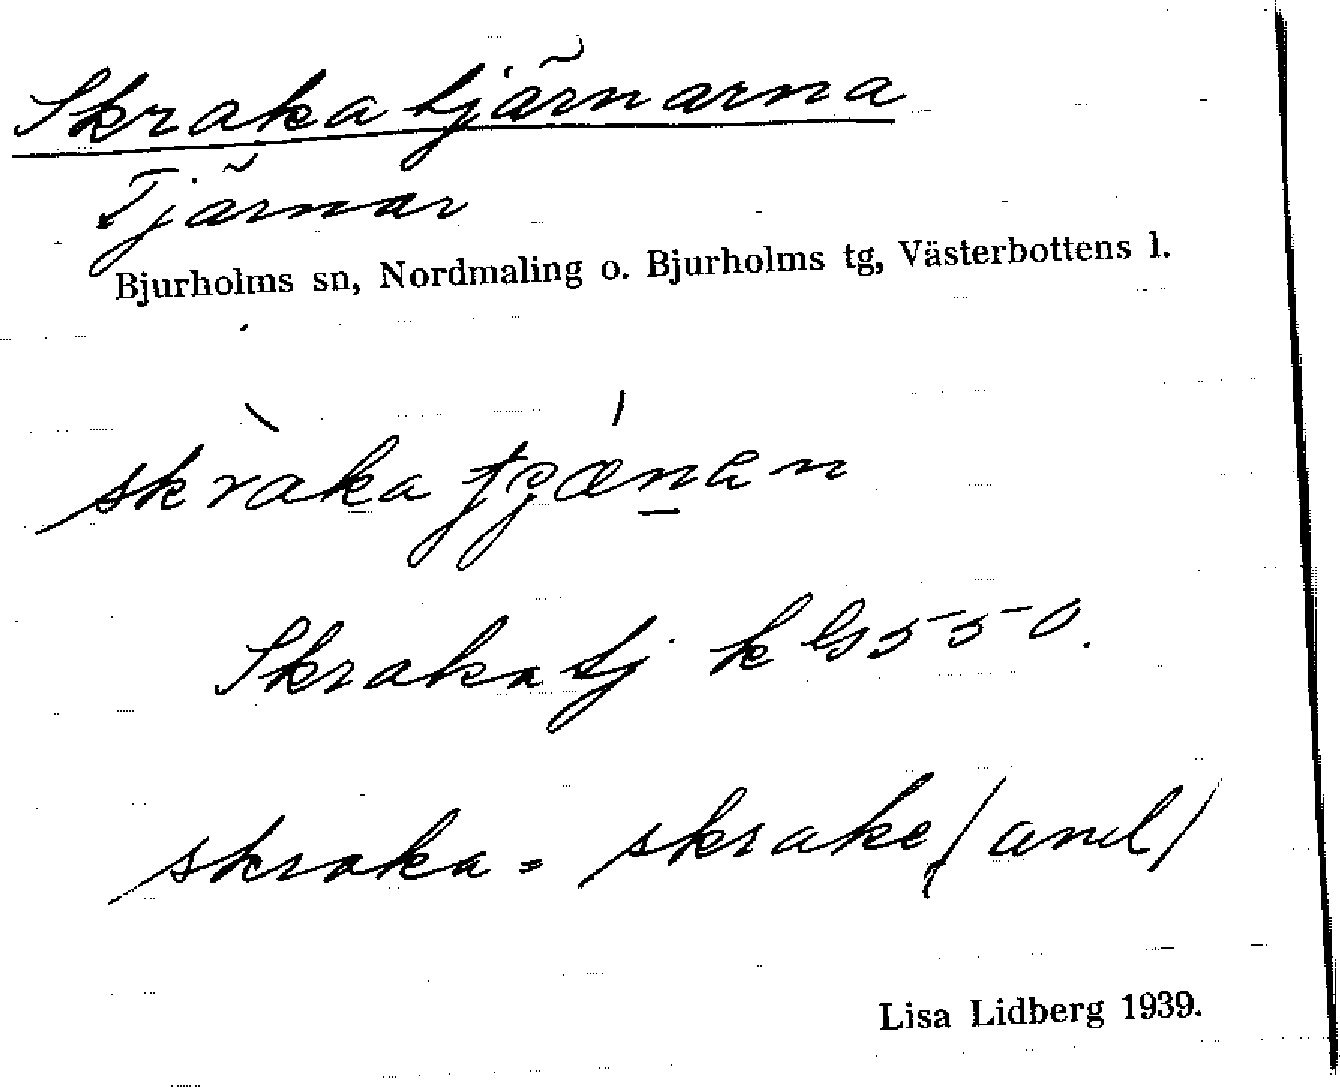 Skrakatjärnarna
Tjärnar
Bjurholms sn, Nordmaling o. Bjurholms tg, Västerbottens l.
skràka
Skrakatj k bl 550.
skraka = skrake, (and)
Lisa Lidberg 1939.